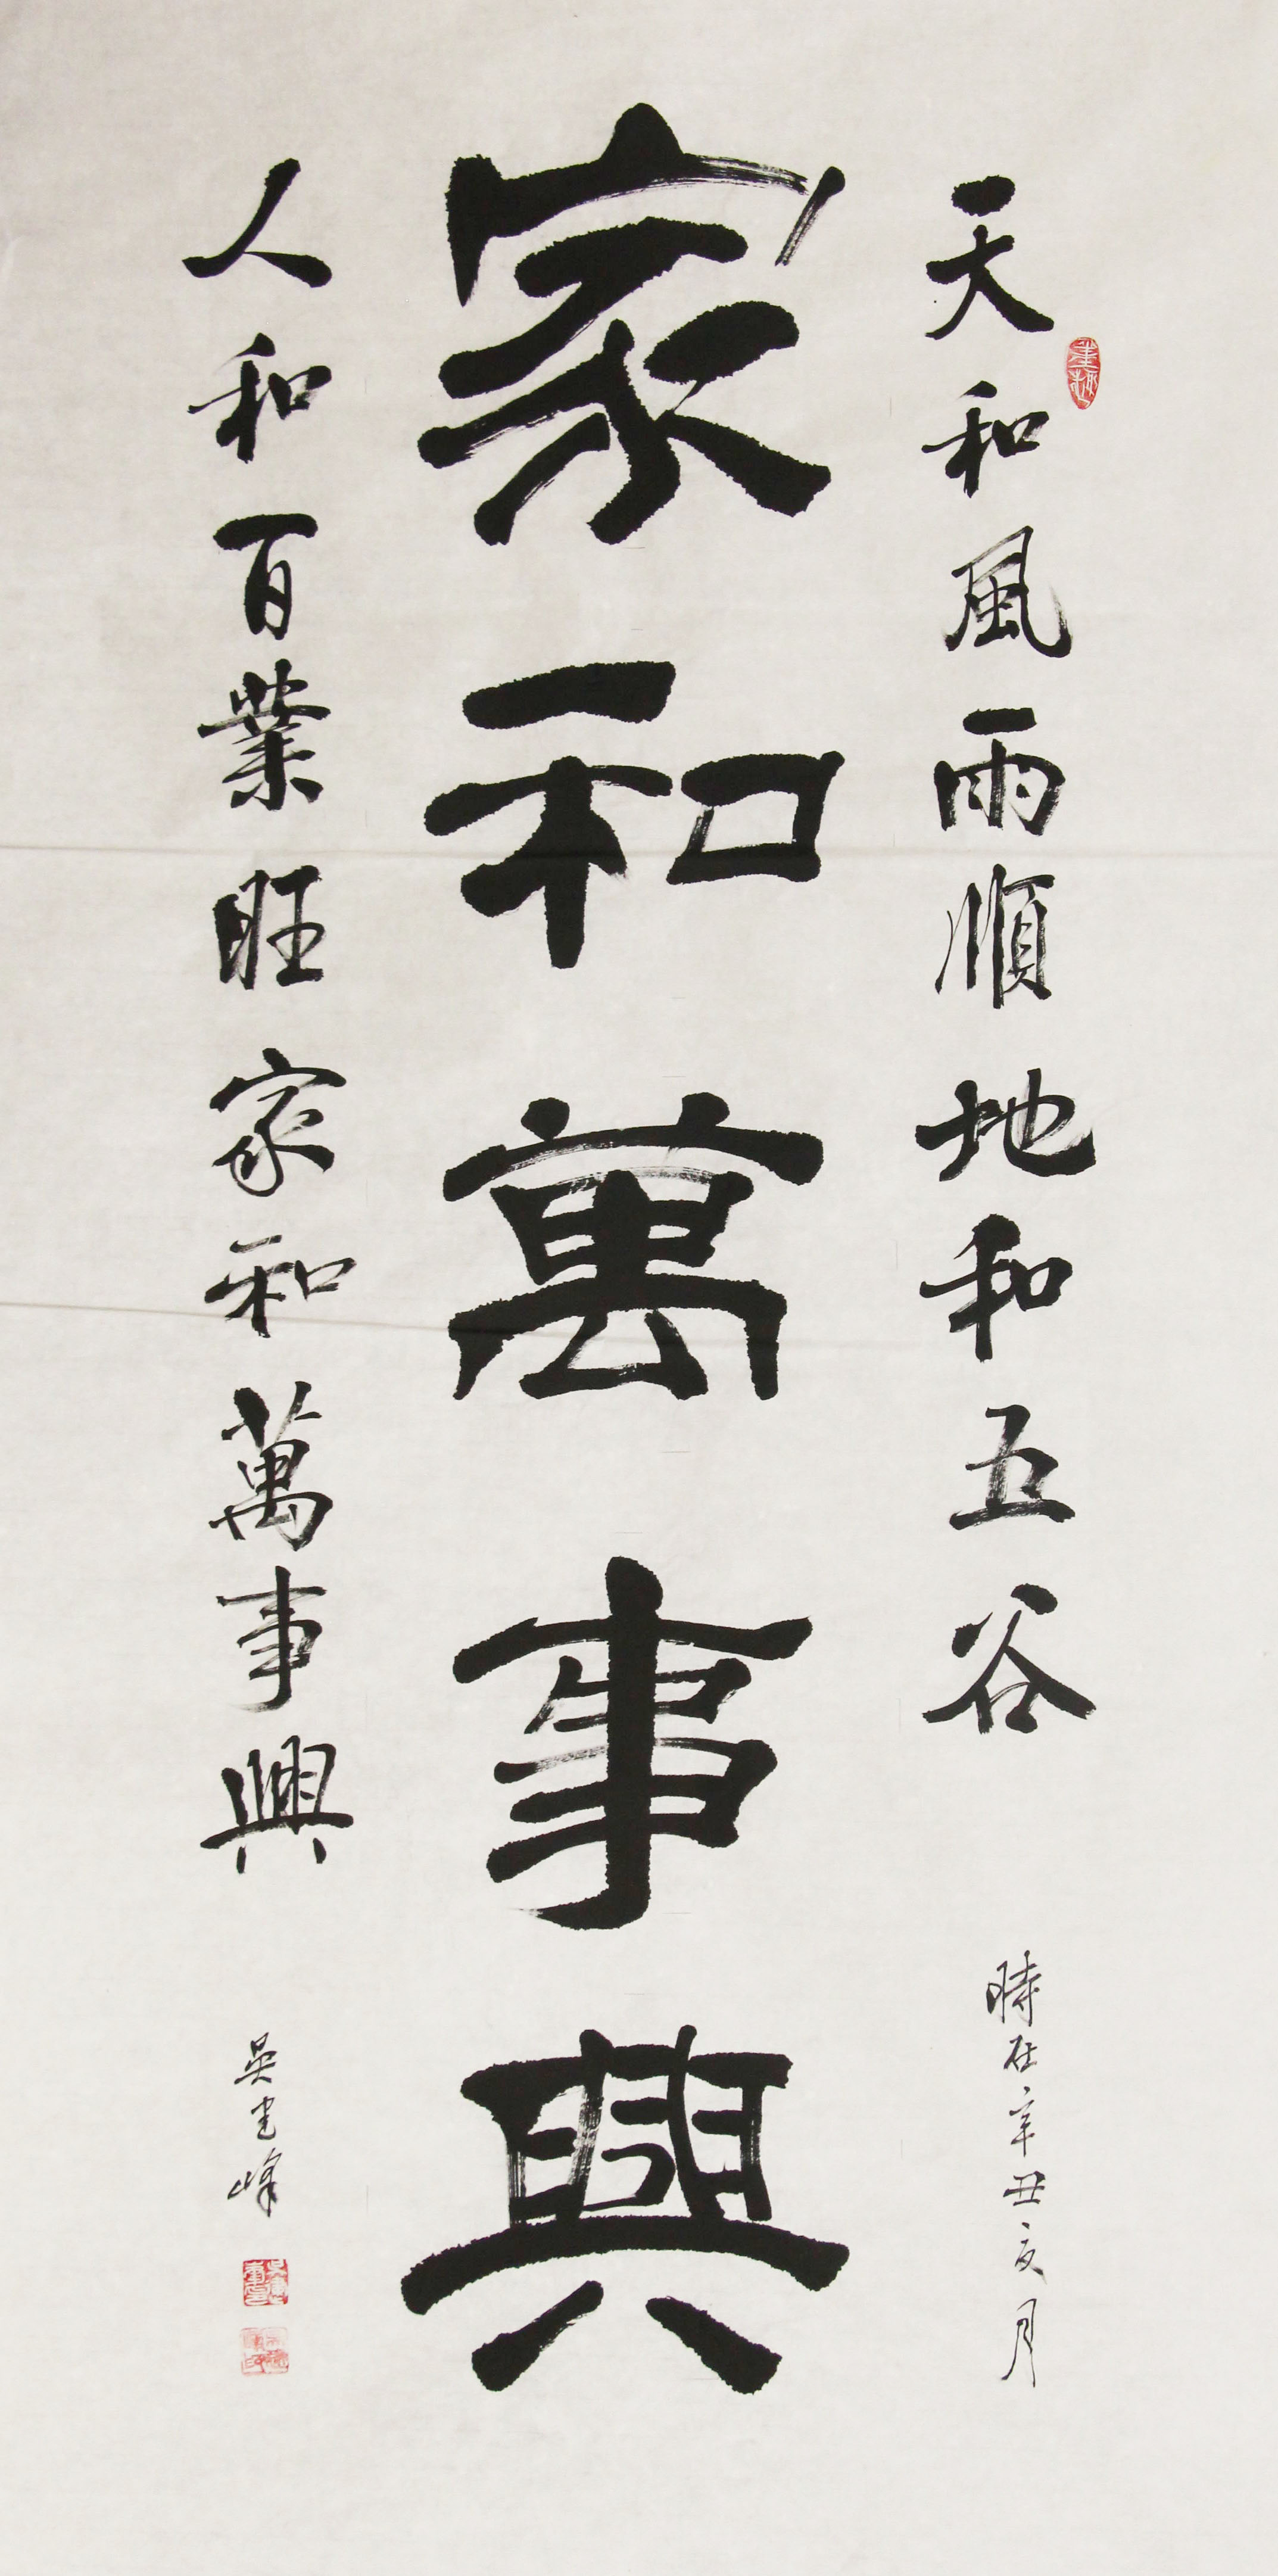 天和風雨順地和五谷
時在辛丑亥月
家和萬事興
人和百業旺家和萬事興
吳建峰